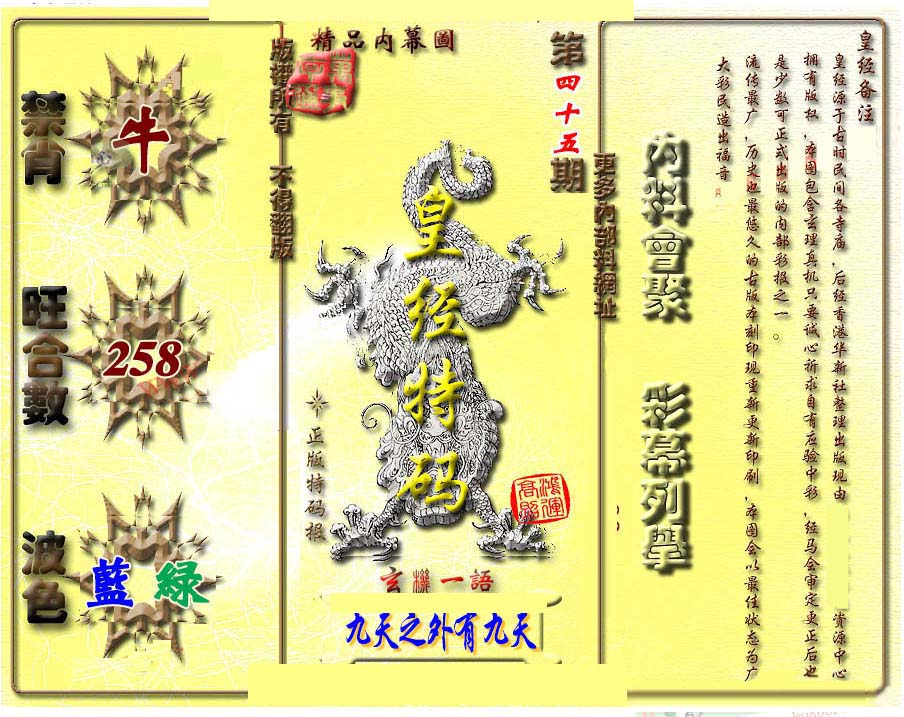 皇经备注
皇经源于古时民间各寺庙，后经香港华新社整理出版现由
资源中心
拥有版权，本图包含玄理真机只要诚心祈求自有应验中彩，经马会审定更正后也
是少数可正式出版的内部彩报之一。
流传最广，历史也最悠久的古版本刻印现重新更新印刷，本图会以最佳状态为广
大彩民造出福音
内料會聚
彩幕列舉
更多內部料網址
第四十五期
精品内幕圖
版權所有 不得翻版
皇经特码
正版特码报
鴻運
高照
玄機一語
九天之外有九天
禁肖
牛
旺合數
258
波色
藍 綠